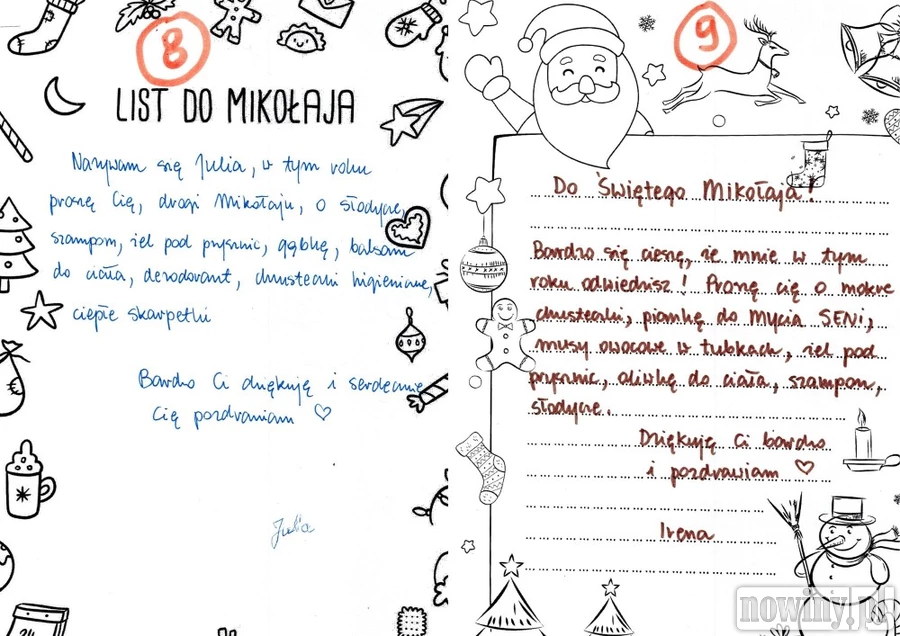 8
LIST DO MIKOŁAJA
Nazywam się Julia, w tym roku
proszę Cię, drogi Mikołaju, o słodycze,
szampon, żel pod prysznic, gąbkę, balsam
do ciała, dezodorant, chusteczki higieniczne,
ciepłe skarpetki
Bardzo Ci dziękuję i serdecznie
Cię pozdrawiam ♡
Julia
9
Do Świętego Mikołaja!
Bardzo się cieszę, że mnie w tym
roku odwiedzisz! Proszę cię o mokre
chusteczki, piankę do mycia SENI,
musy owocowe w tubkach, żel pod
prysznic, oliwkę do ciała, szampon,
słodycze.
Dziękuję Ci bardzo
i pozdrawiam ♡
Irena
24
nowiny.pl